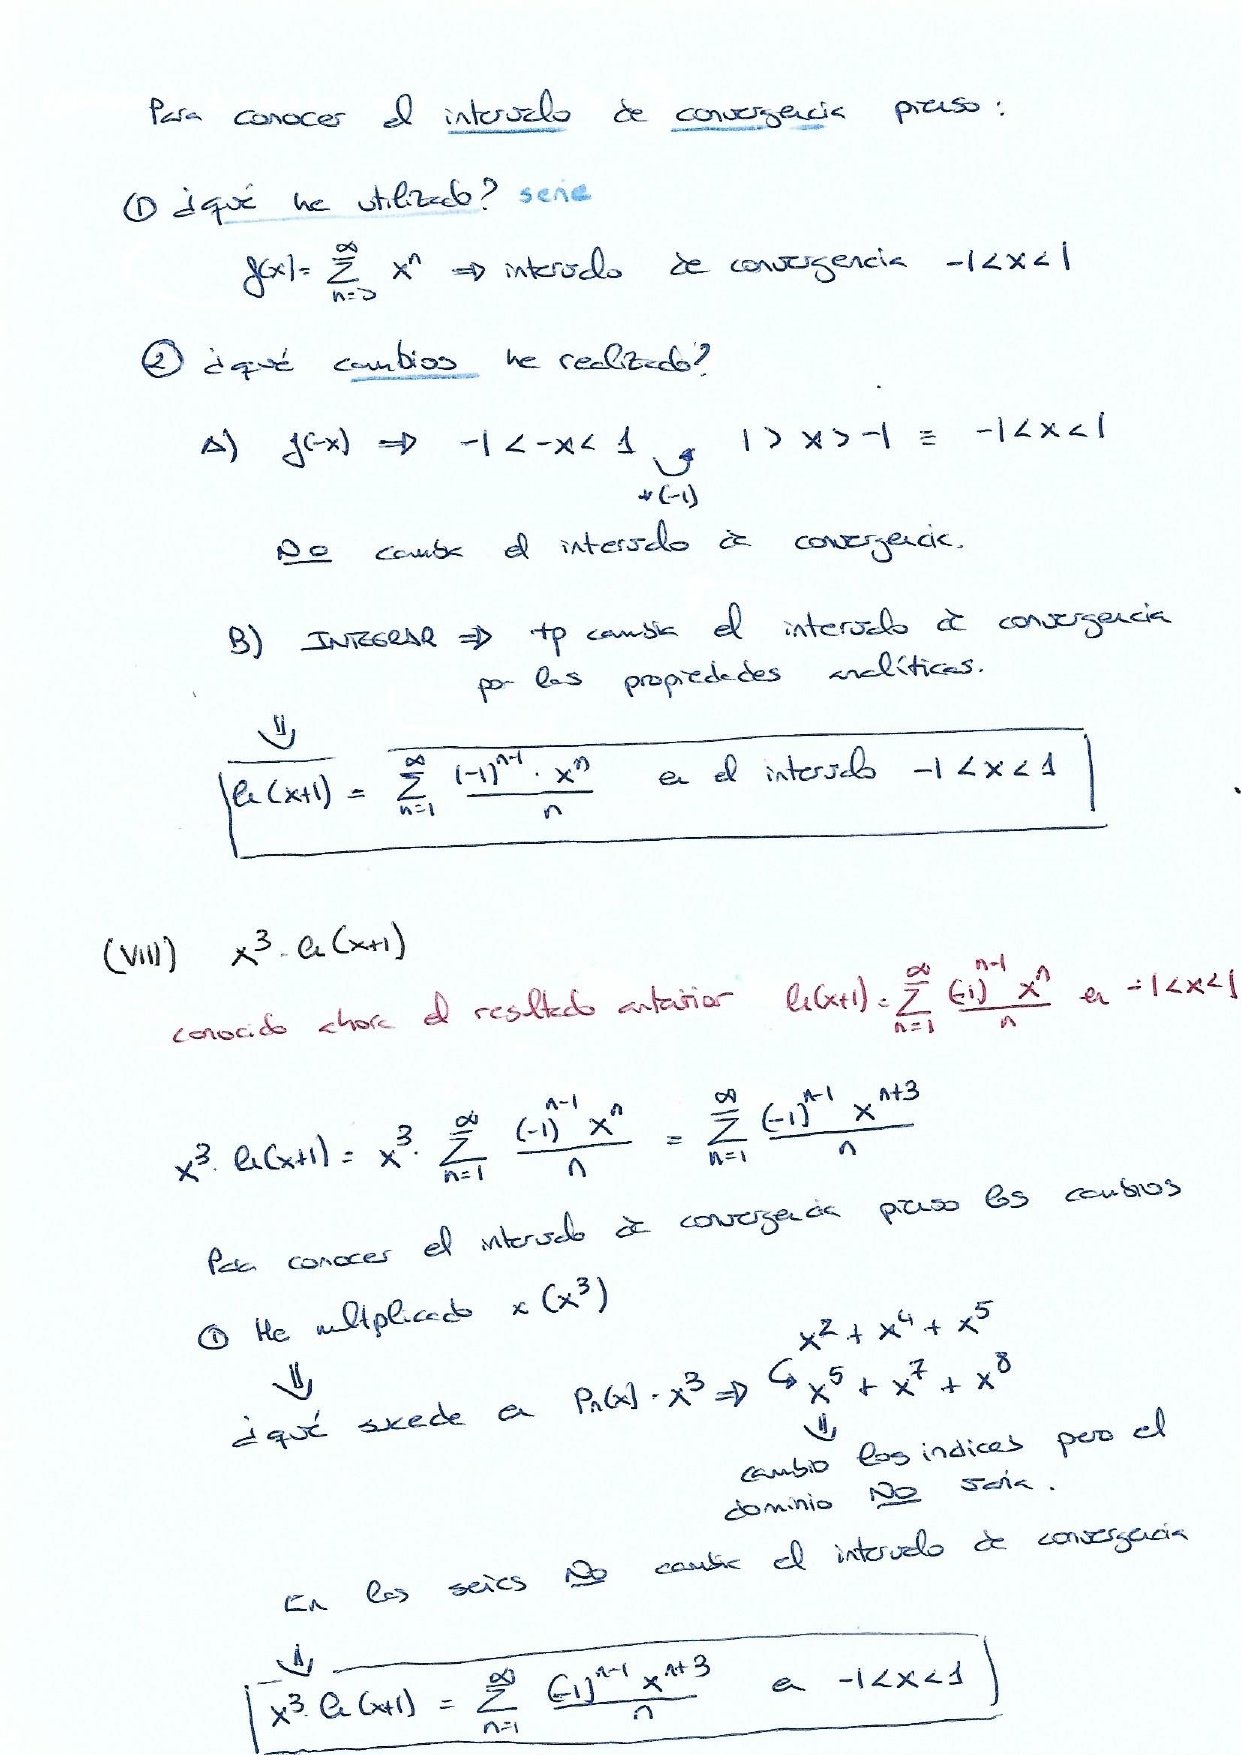 Para conocer el intervalo de convergencia preciso:
① ¿qué he utilizado? serie
g(x) = ∑_{n=0}^{∞} x^n ⇒ intervalo de convergencia -1<x<1
② ¿qué cambios he realizado?
A) g(-x) ⇒ -1<-x<1 1>x>-1 ≡ -1<x<1
*(-1)
NO cambia el intervalo de convergencia.
B) INTEGRAR ⇒ tp cambia el intervalo de convergencia
por las propiedades analíticas.
⇓
ln(x+1) = ∑_{n=1}^{∞} (-1)^{n-1} · x^n / n en el intervalo -1<x<1
(VIII) x^3 · ln(x+1)
conocido ahora el resultado anterior ln(x+1) = ∑_{n=1}^{∞} (-1)^{n-1} x^n / n en -1<x<1
x^3 · ln(x+1) = x^3 · ∑_{n=1}^{∞} (-1)^{n-1} x^n / n = ∑_{n=1}^{∞} (-1)^{n-1} x^{n+3} / n
Para conocer el intervalo de convergencia preciso los cambios
① He multiplicado x (x^3)
x^2 + x^4 + x^5
⇓
¿qué sucede en P_n(x) · x^3 ⇒ ↪ x^5 + x^7 + x^8
⇓
cambio los indices pero el
dominio NO varía.
En las series NO cambia el intervalo de convergencia
⇓
x^3 · ln(x+1) = ∑_{n=1}^{∞} (-1)^{n-1} x^{n+3} / n en -1<x<1